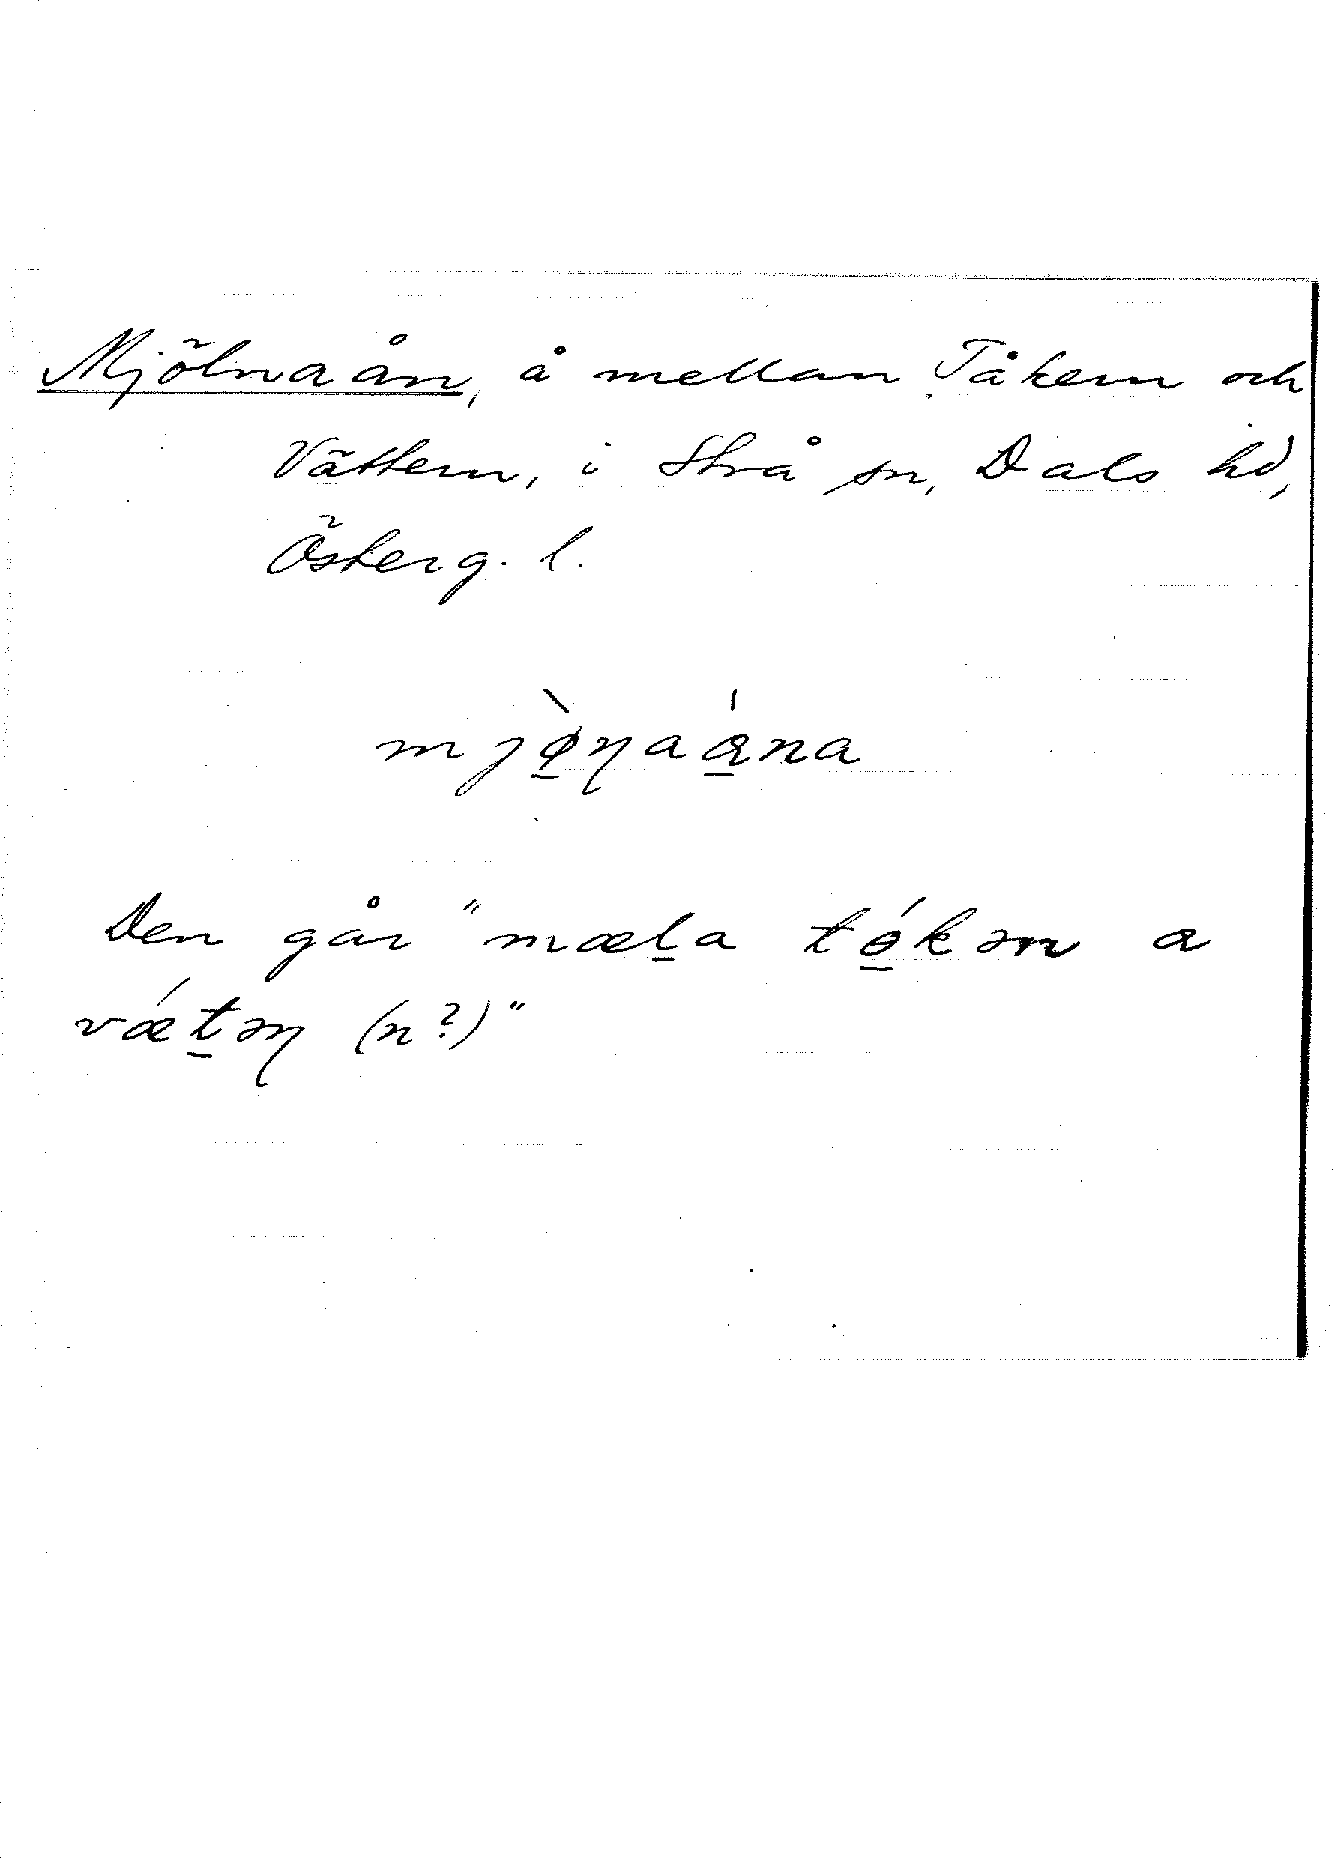 Mjölnaån, å mellan Tåkern och
Vättern, i Strå sn, Dals hd,
Österg. l.
mjø̱̀ŋaá̱na
Den går "mæḻa tó̱kəm a
vǽṯəŋ (n?)"